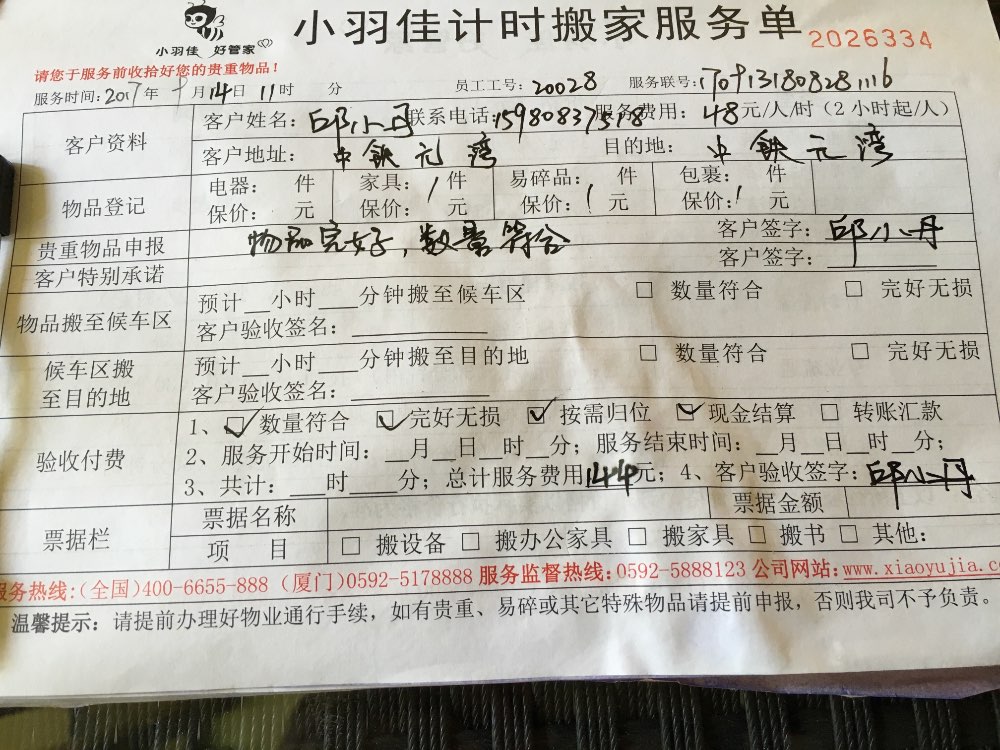 小羽佳 好管家
小羽佳计时搬家服务单
2026334
请您于服务前收拾好您的贵重物品！
服务时间：2017年 月14日 11时 分 员工工号：20028 服务联号：
客户资料 客户姓名：邱小丹 联系电话： 服务费用：48元/人/时（2小时起/人）
客户地址：中铁元湾 目的地：中铁元湾
物品登记 电器： 件 家具：1件 易碎品： 件 包裹： 件
保价： 元 保价：1元 保价：1元 保价：1元
贵重物品申报 物品完好，数量符合 客户签字：邱小丹
客户特别承诺 客户签字：
物品搬至候车区 预计__小时___分钟搬至候车区 □ 数量符合 □ 完好无损
客户验收签名：
候车区搬至目的地 预计__小时___分钟搬至目的地 □ 数量符合 □ 完好无损
客户验收签名：
验收付费 1、☑数量符合 ☑完好无损 ☑按需归位 ☑现金结算 □ 转账汇款
2、服务开始时间：__月__日__时__分；服务结束时间：__月__日__时__分；
3、共计：___时____分；总计服务费用144元；4、客户验收签字：邱小丹
票据栏 票据名称 票据金额
项 目 □ 搬设备 □ 搬办公家具 □ 搬家具 □ 搬书 □ 其他：
服务热线：(全国)400-6655-888 (厦门)0592-5178888 服务监督热线：0592-5888123 公司网站：www.xiaoyujia.co
温馨提示：请提前办理好物业通行手续，如有贵重、易碎或其它特殊物品请提前申报，否则我司不予负责。